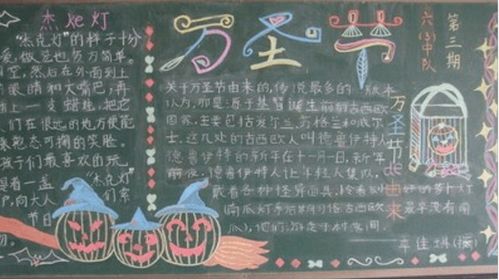 万圣节
六(3)中队
第三期
杰克灯
"杰克灯"的样子十分
爱,做法也贵万简单。
空,然后在外面刻上
眼睛和大嘴巴,再
上一支蜡烛,把它
们在很远的地方便能
憨态可掬的笑脸。
孩子们最喜欢的玩
着一盏"杰克灯"
向大人们索
节日
关于万圣节由来的,传说最多的版本
认为,那是源于基督诞生前的古西欧
国家,主要包括爱尔兰、苏格兰和威尔
士。这几处的古西欧人叫德鲁伊特人
德鲁伊特的新年在十一月一日,新年
前夜,德鲁伊特人让年轻人集队,
戴着各种怪异面具,拎着刻好的萝卜灯
(南瓜灯系后期习俗,古西欧最早没有南
瓜),他们游走于村落间。
万圣节de由来